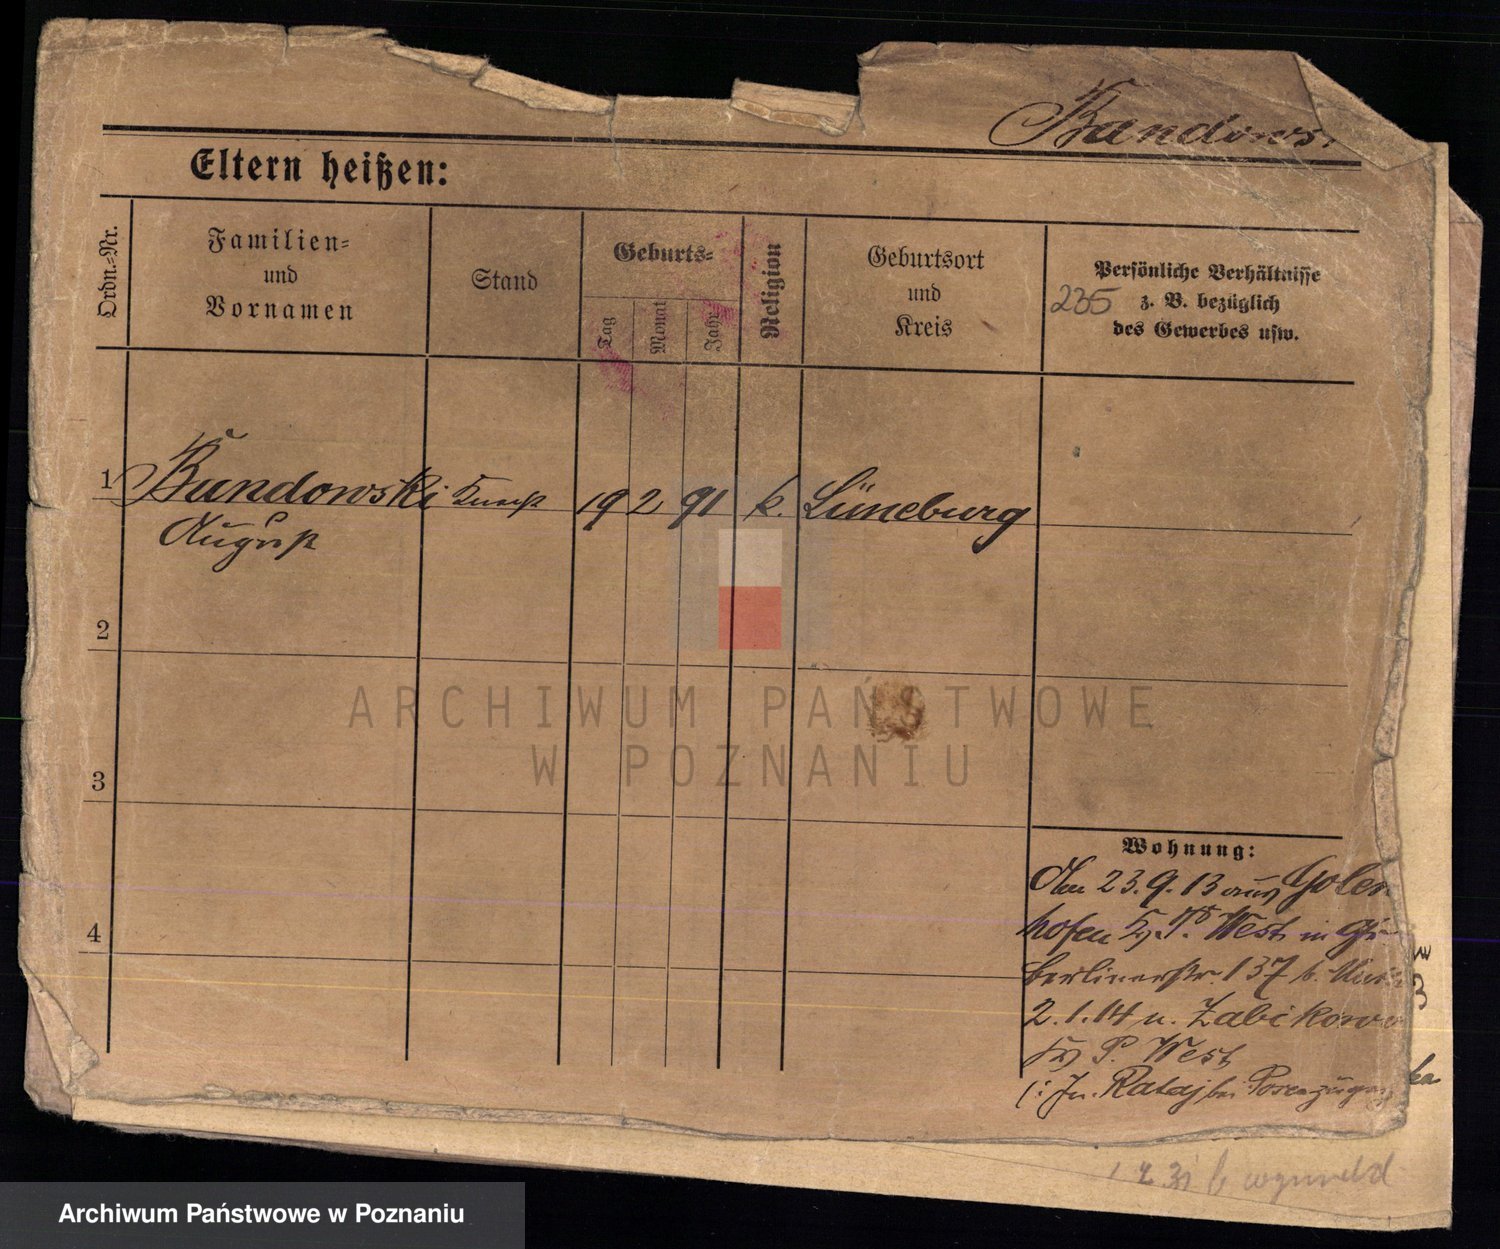 Bandows
Eltern heißen:
Ordn.-Nr.
Familien-
und
Vornamen
Stand
Geburts-
Tag
Monat
Jahr
Religion
Geburtsort
und
Kreis
Persönliche Verhältnisse
z. B. bezüglich
des Gewerbes usw.
235
1 Bandowski 19 2 91 k. Lüneburg
August
2
3
4
Wohnung:
Am 23.9.13 aus Golen
hofen P. West in
Berlinerstr. 137 b.
2.1.14 n. Zabikowo
P. West
(: Jn. Rataj bei
ARCHIWUM PAŃSTWOWE
W POZNANIU
Archiwum Państwowe w Poznaniu